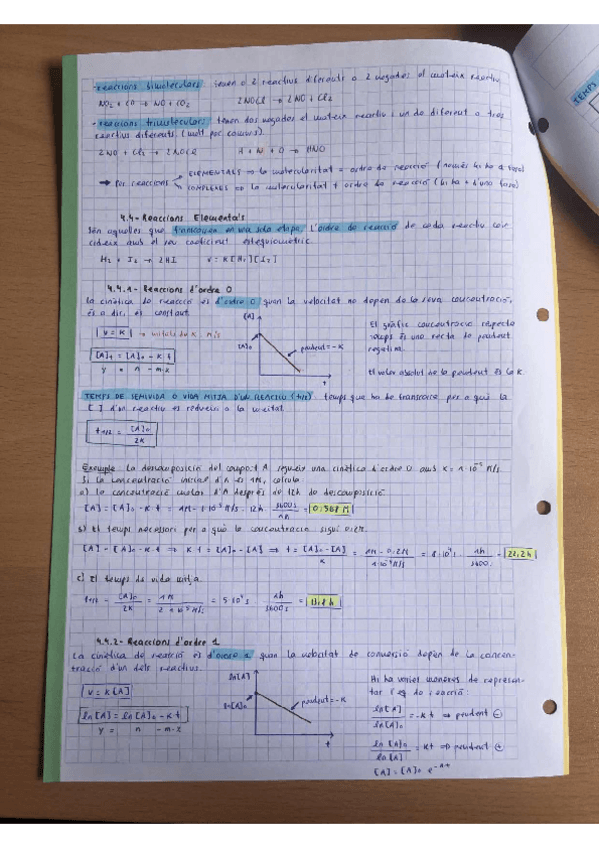 - reaccions bimoleculars: tenen o 2 reactius diferents o 2 vegades el mateix reactiu
NO₂ + CO → NO + CO₂ 2NOCl → 2NO + Cl₂
- reaccions trimoleculars: tenen dos vegades el mateix reactiu i un de diferent o tres
reactius diferents. (molt poc comuns).
2NO + Cl₂ → 2NOCl H + N + O → HNO
→ Per reaccions ELEMENTALS ⇒ la molecularitat = ordre de reacció (només hi ha 1 fase)
COMPLEXES ⇒ la molecularitat ≠ ordre de reacció (hi ha + d'una fase)
4.4- Reaccions Elementals
Són aquelles que transcorren en una sola etapa. L'ordre de reacció de cada reactiu coin-
cideix amb el seu coeficient estequiomètric.
H₂ + I₂ → 2HI v = K[H₂][I₂]
4.4.1- Reaccions d'ordre 0
La cinètica de reacció és d'ordre 0 quan la velocitat no depèn de la seva concentració,
és a dir, és constant.
v = K → unitats de K M/s
[A]t = [A]₀ - K t
y = n - m·x
[A]
[A]₀
pendent = -K
t
El gràfic concentració respecte
temps és una recta de pendent
negatiu.
El valor absolut de la pendent és la K.
TEMPS DE SEMIVIDA O VIDA MITJA D'UN REACTIU (t1/2): temps que ha de transcórrer per a què la
[ ] d'un reactiu es redueixi a la meitat.
t1/2 = [A]₀ / 2K
Exemple: La descomposició del compost A segueix una cinètica d'ordre 0 amb K = 1·10⁻⁵ M/s.
Si la concentració inicial d'A és 1M, calcula:
a) la concentració molar d'A després de 12h de descomposició
[A] = [A]₀ - K·t = 1M - 1·10⁻⁵ · 12h · 3600s / 1h = 0,568 M
b) El temps necessari per a què la concentració sigui 0,2M.
[A] = [A]₀ - K·t ⇒ K t = [A]₀ - [A] ⇒ t = [A]₀ - [A] / K = 1M - 0,2M / 1·10⁻⁵ M/s = 8·10⁴ s · 1h / 3600s = 22,2h
c) El temps de vida mitja
t1/2 = [A]₀ / 2K = 1M / 2·1·10⁻⁵ M/s = 5·10⁴ s 1h / 3600s =
4.4.2- Reaccions d'ordre 1
La cinètica de reacció és d'ordre 1 quan la velocitat de conversió depèn de la concen-
tració d'un dels reactius.
v = K[A]
ln[A] = ln[A]₀ - K·t
y = n - m·x
ln[A]
ln[A]₀
pendent = -K
t
Hi ha varies maneres de represen-
tar l'eq de reacció:
ln[A] / ln[A]₀ = -Kt ⇒ pendent ⊖
ln[A]₀ / ln[A] = Kt ⇒ pendent ⊕
[A] = [A]₀ e^-Kt
TEMPS